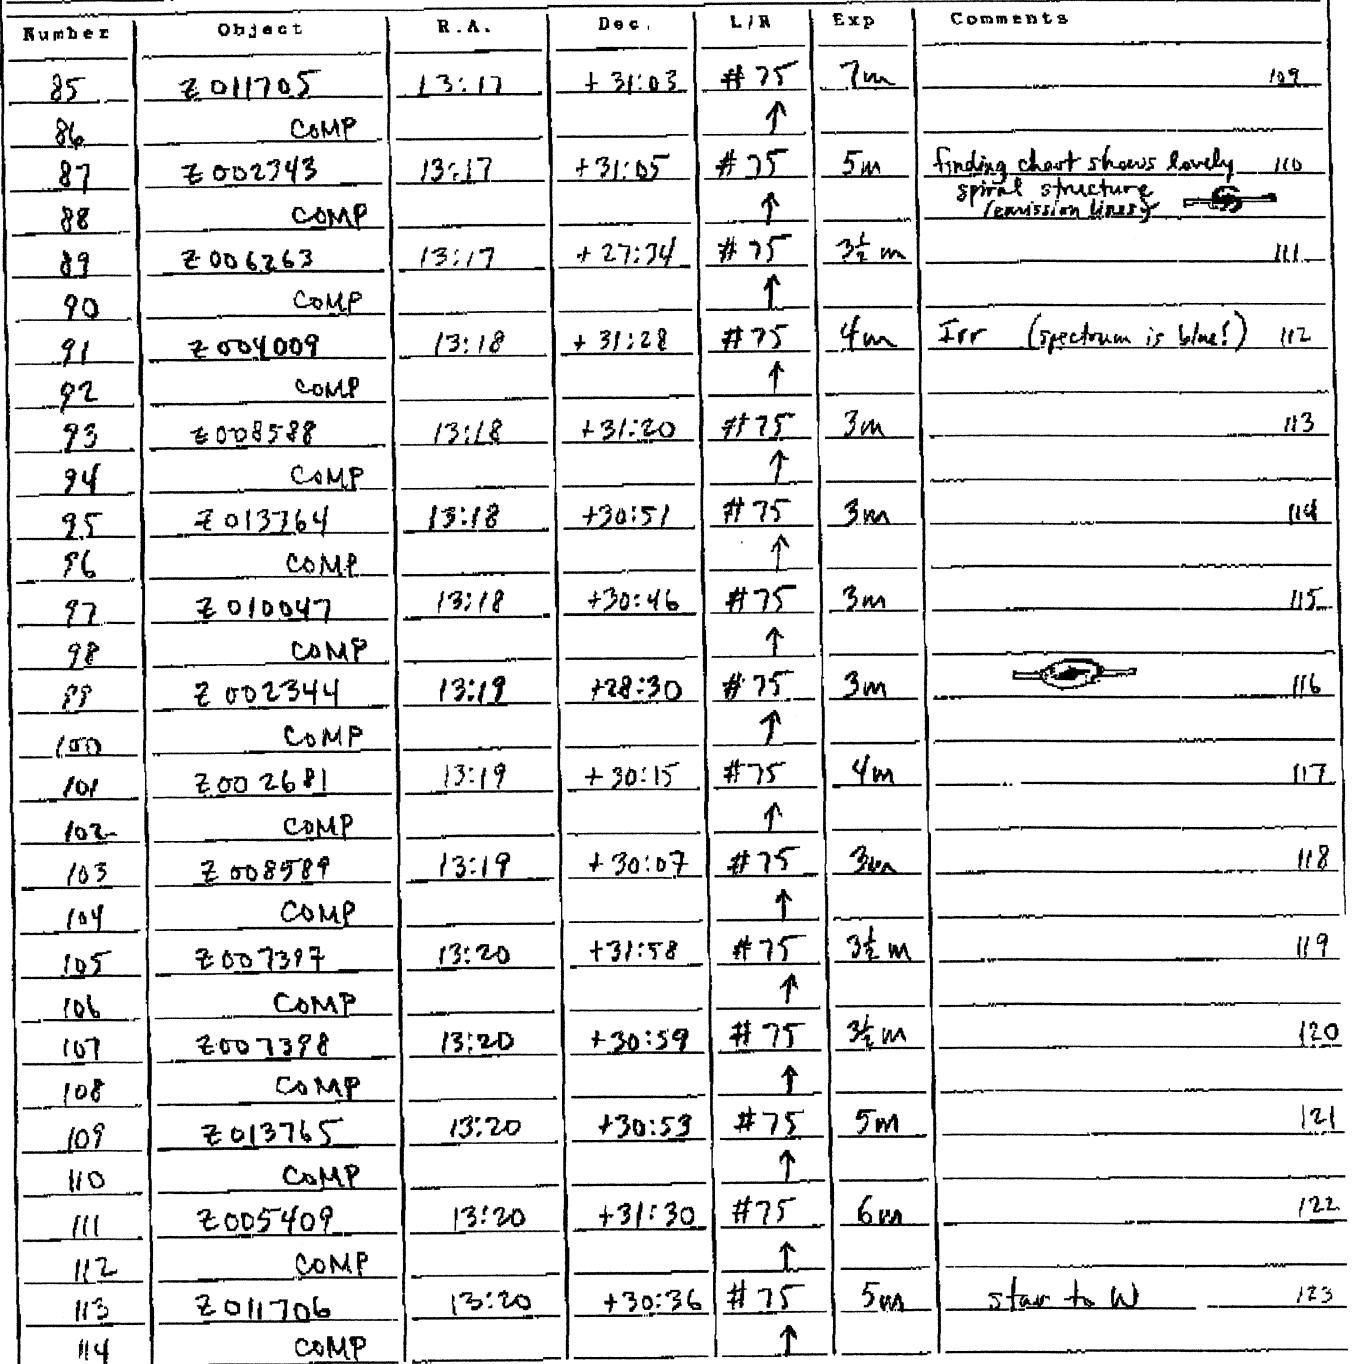 Number Object R.A. Dec. L/R Exp Comments
85 Z011705 13:17 +31:03 #75 7m 109
86 COMP ↑
87 Z002343 13:17 +31:05 #75 5m finding chart shows lovely 110
spiral structure
88 COMP ↑ (emission lines)
89 Z006263 13:17 +27:34 #75 3½m 111
90 COMP ↑
91 Z004009 13:18 +31:28 #75 4m Irr (spectrum is blue!) 112
92 COMP ↑
93 Z008588 13:18 +31:20 #75 3m 113
94 COMP ↑
95 Z013764 13:18 +30:51 #75 3m 114
96 COMP ↑
97 Z010047 13:18 +30:46 #75 3m 115
98 COMP ↑
99 Z002344 13:19 +28:30 #75 3m 116
100 COMP ↑
101 Z002681 13:19 +30:15 #75 4m 117
102 COMP ↑
103 Z008589 13:19 +30:07 #75 3m 118
104 COMP ↑
105 Z007397 13:20 +31:58 #75 3½m 119
106 COMP ↑
107 Z007398 13:20 +30:59 #75 3½m 120
108 COMP ↑
109 Z013765 13:20 +30:53 #75 5m 121
110 COMP ↑
111 Z005409 13:20 +31:30 #75 6m 122
112 COMP ↑
113 Z011706 13:20 +30:36 #75 5m star to W 123
114 COMP ↑